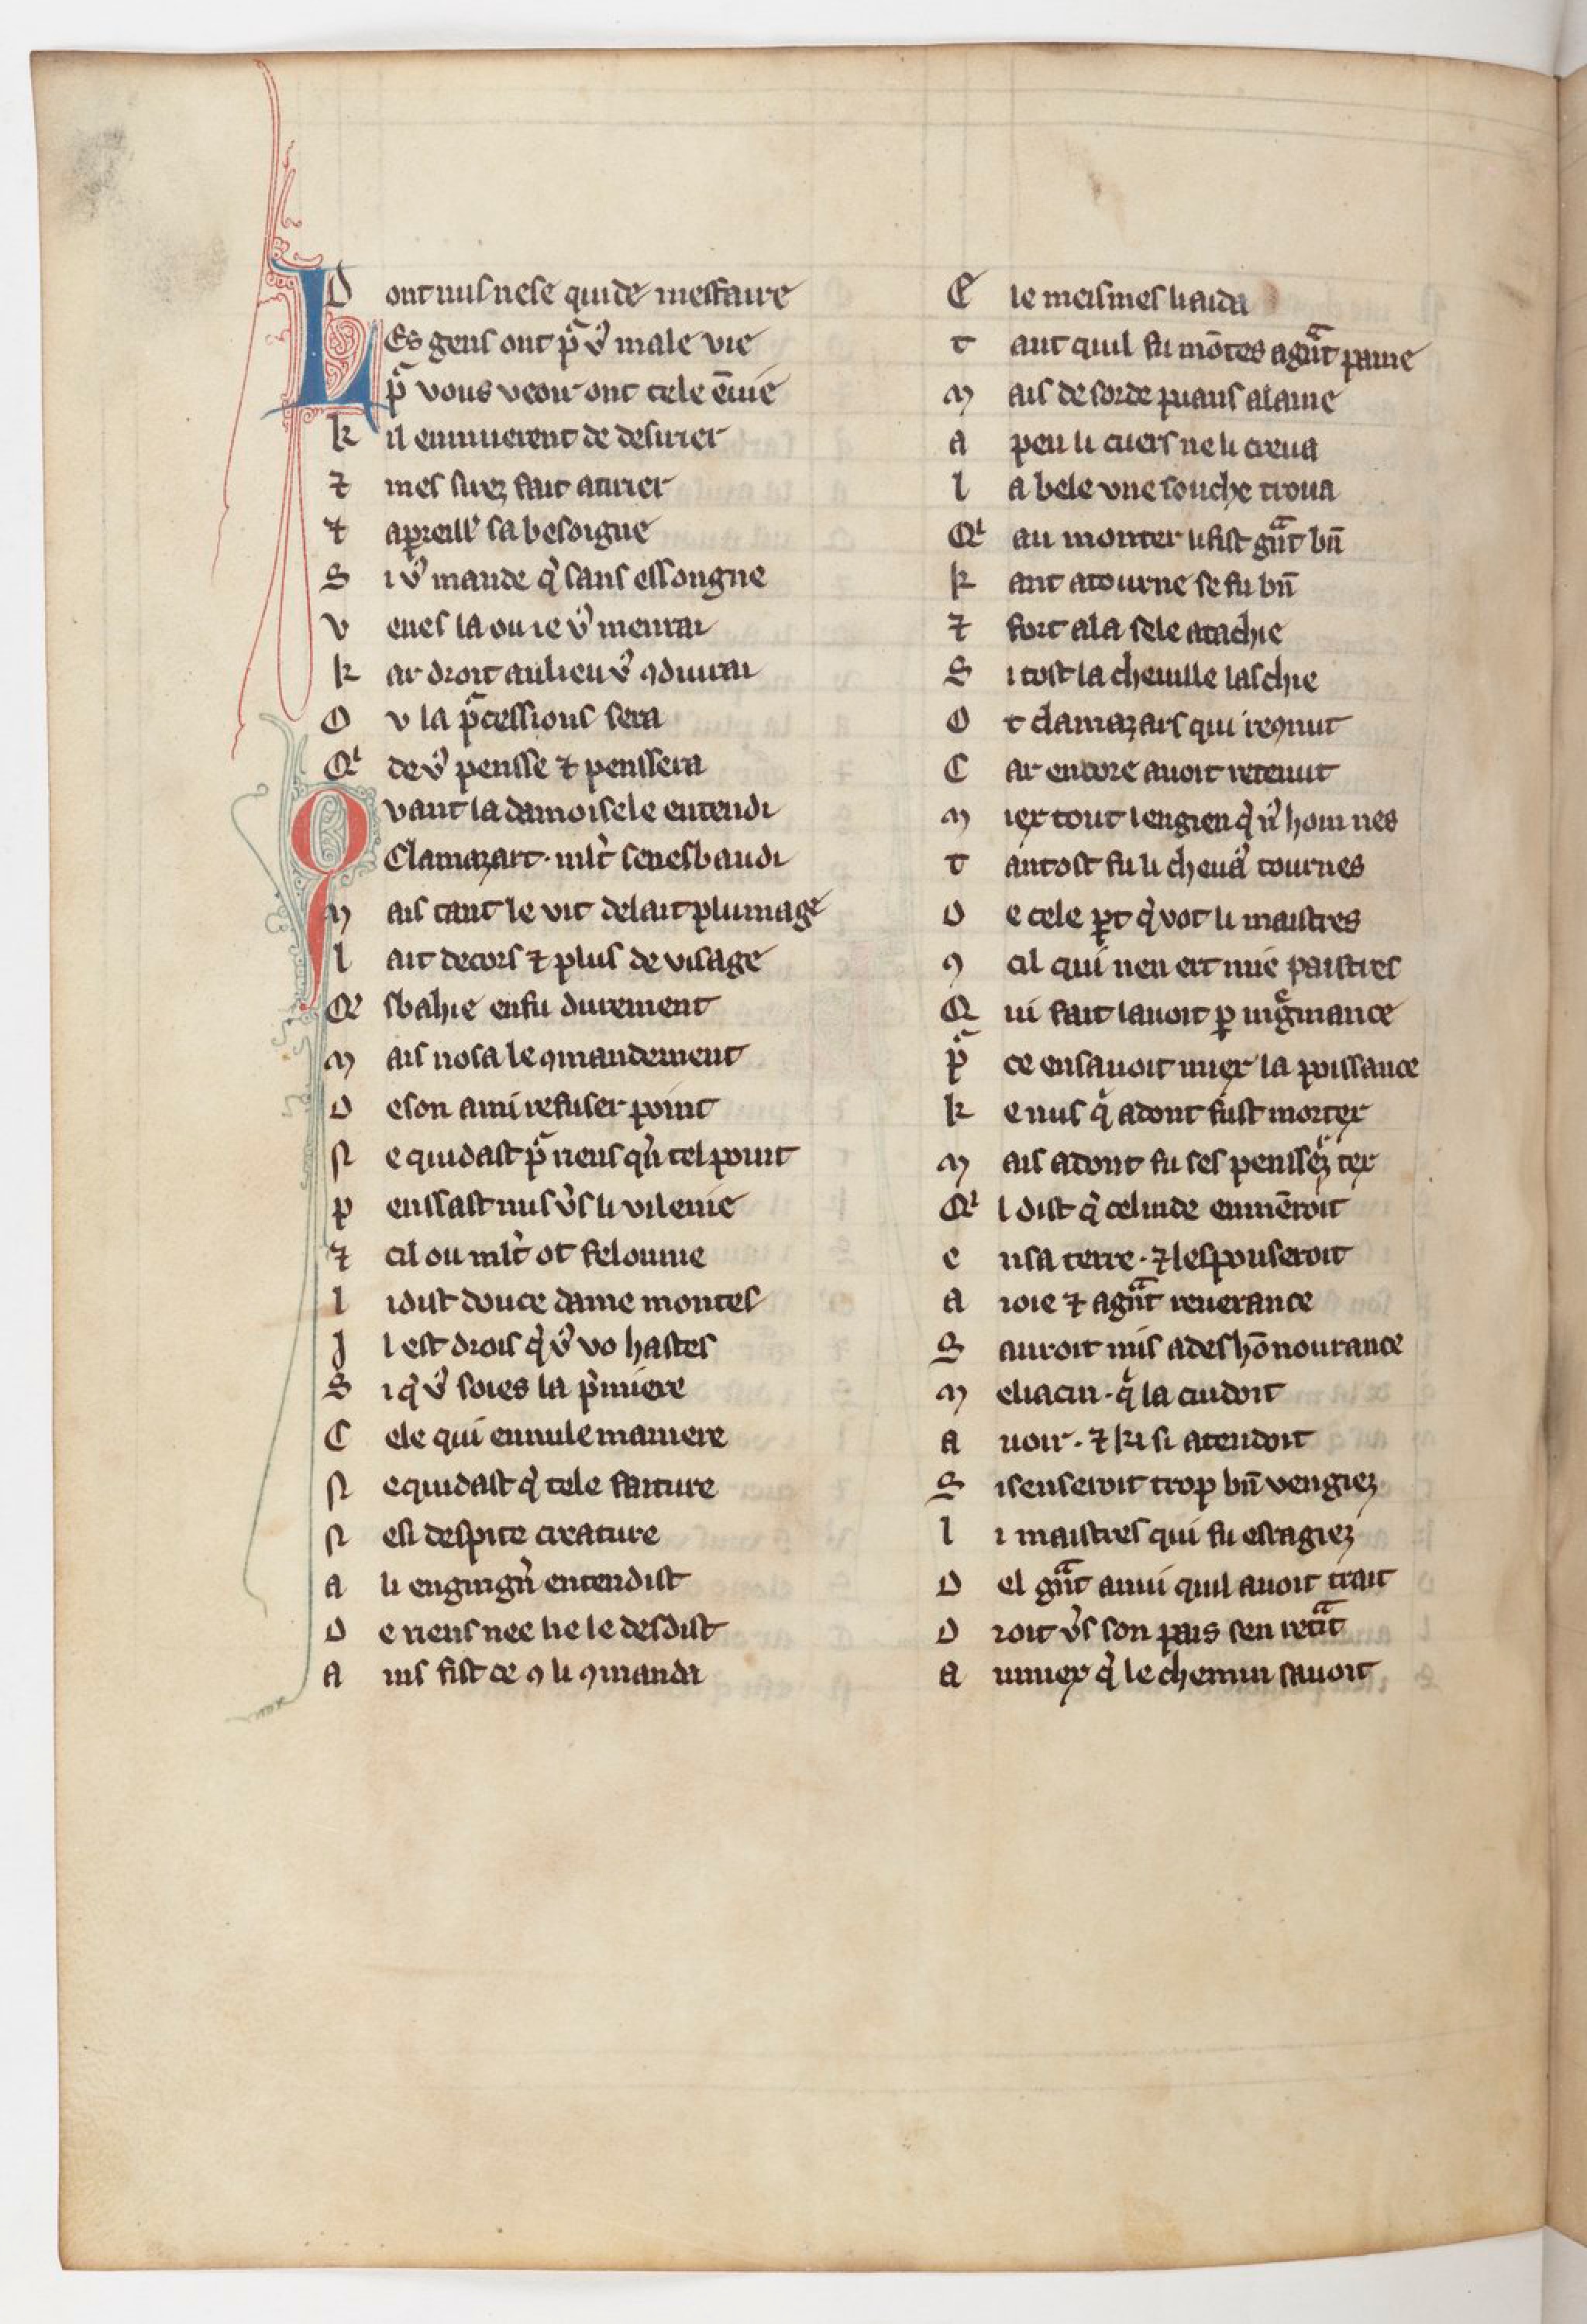 D ont nus ne se quide meffaire
LEs gens ont pᵃ vꝰ male vie
pᵃ vous veoir ont cele ēuie
k il enmuerent de desirier
⁊ mes sirez fait atirier
⁊ apreillᵉ sa besoigne
S i vꝰ mande qͥ sans essongne
v enes la ou ie vꝰ menrai
k ar droit au lieu vꝰ ꝯduirai
O v la pᵃcessions sera
Qͥ de vꝰ pensse ⁊ penssera
Qvant la damoisele entendi
Clamazart · mlt̉ sen esbaudi
M ais tant le vit de lait plumage
l ait de cors ⁊ plus de visage
E sbahie en fu durement
M ais nosa le ꝯmandement
D e son ami refuser point
N e quidast pᵃ riens qͥn tel point
p enssast nus v̉s li vilenie
⁊ cil ou mlt̉ ot felounie
l i dist douce dame montes
I l est drois qͥ vꝰ vo hastes
S i qͥ vꝰ soies la pͥmiere
C ele qui en nule maniere
N e quidast qͥ tele faiture
N e si despite creature
a li engingn̉ entendist
D e riens nee lie le desdist
A ins fist ce ꝯ li ꝯmanda
E ie meismes li aida
t ant quil fu mōtes a gᵃnt paine
M ais de sorde puans alaine
A peu li cuers ne li creua
l a bele vne souche troua
Qͥ au monter li fist gᵃnt bn̄
k ant atourne se fu bn̄
⁊ fort a la sele atachie
S i tost la cheuille laschie
O t clamazars qui reꝯnut
C ar encore auoit retenut
M iex tout lengien qͥ nꝰ hom nes
T antost fu li cheuaꝰ tournes
D e cele ꝑt qͥ vot li maistres
ꝯ cil qui nen ert mie paistres
Q ui fait lauoit ꝑ nigᵒmance
pᵃ ce en sauoit miex la poissance
k e nus qͥ adont fust mortex
M ais adont fu ses penssez tex
Qͥ l dist qͥ celinde enmēroit
e n sa terre · ⁊ lespouseroit
A ioie ⁊ a gᵃnt reuerance
S auroit mis a deshōnourance
M eliacin · qͥ la cuidoit
A uoir · ⁊ ki si atendoit
S i sen seroit trop bn̄ vengiez
l i maistres qui fu esragiez
D el gᵃnt anui quil auoit trait
D roit v̉s son pais sen retᵃit
A u miex qͥ le chemin sauoit